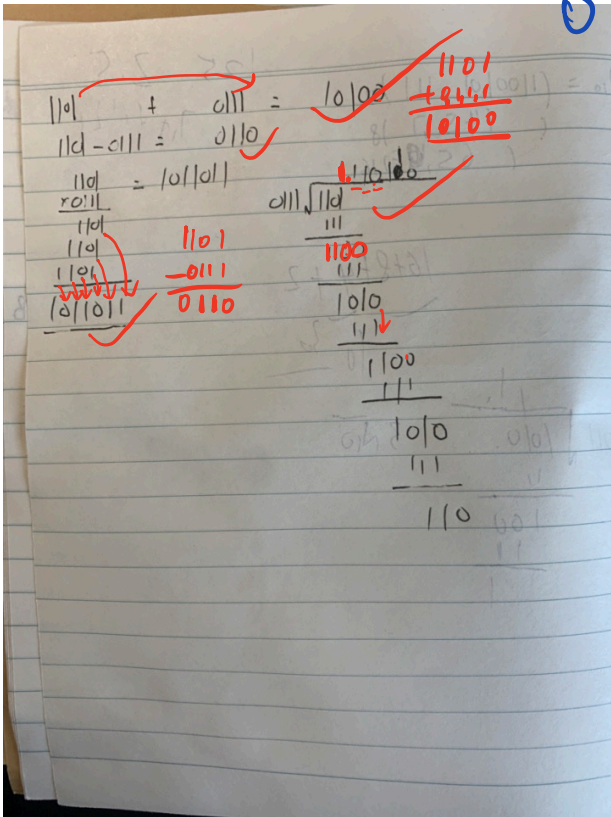 1101 + 0111 = 10100
1101 - 0111 = 0110
1101 = 1011011
x0111
1101
1101
1101
1011011
1101
-0111
0110
1101
+0111
10100
0111 √1101
111
1100
111
1010
111
1100
111
1010
111
110